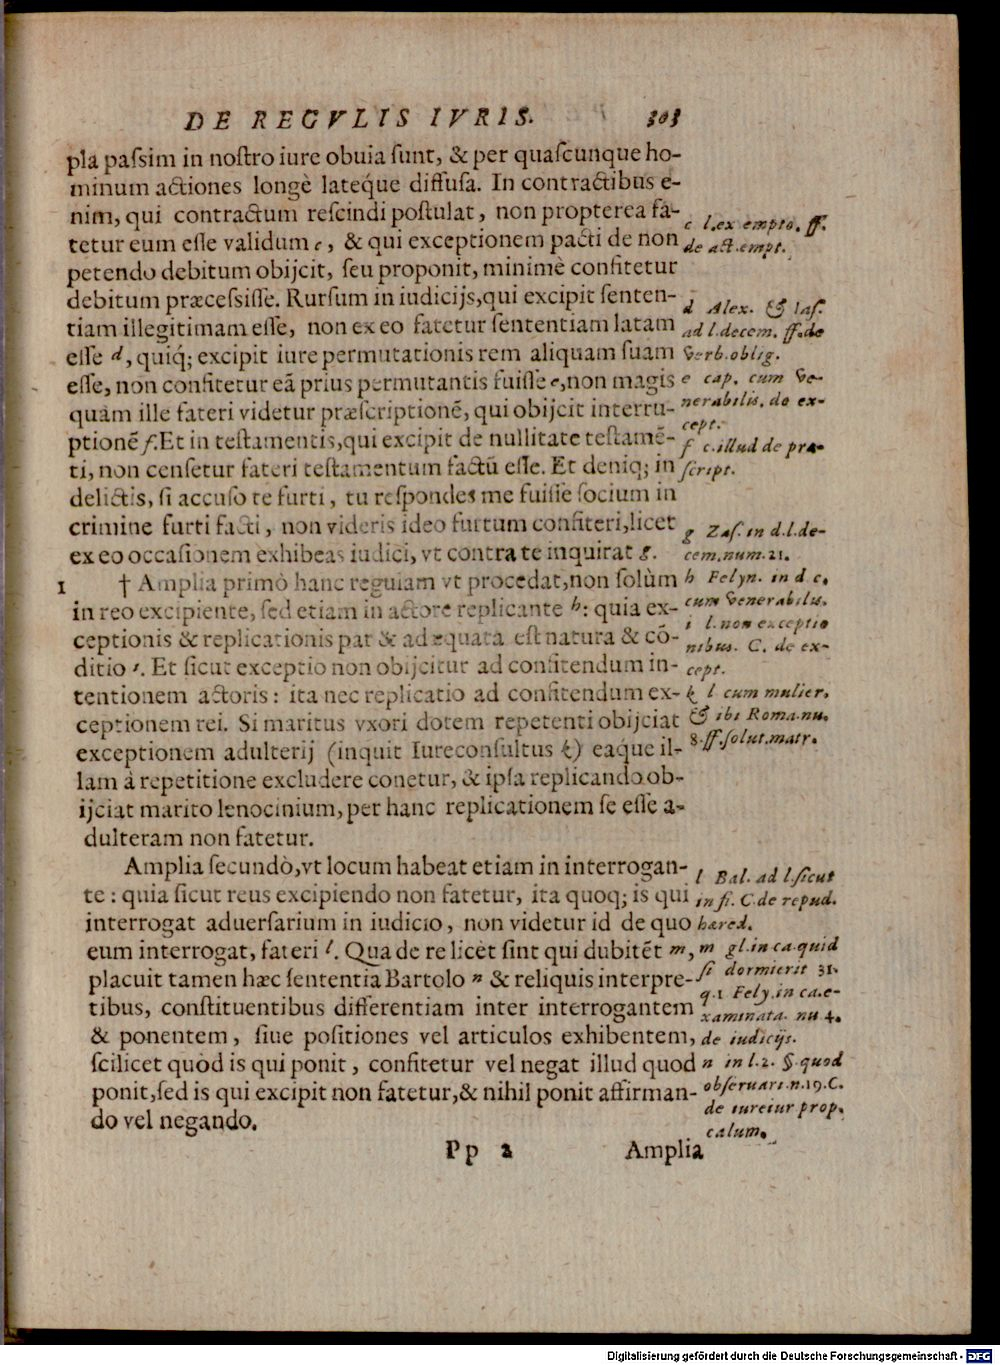 DE REGVLIS IVRIS. 303
pla paſsim in noſtro iure obuia ſunt, & per quaſcunque ho-
minum actiones longè lateq́ue diffuſa. In contractibus e-
nim, qui contractum reſcindi poſtulat, non propterea fa-
tetur eum eſſe validum c, & qui exceptionem pacti de non
petendo debitum obijcit, ſeu proponit, minimè confitetur
debitum præceſsiſſe. Rurſum in iudicijs, qui excipit ſenten-
tiam illegitimam eſſe, non ex eo fatetur ſententiam latam
eſſe d, quiq́; excipit iure permutationis rem aliquam ſuam
eſſe, non confitetur eā prius permutantis fuiſſe e, non magis
quàm ille fateri videtur præſcriptionē, qui obijcit interru-
ptionē f. Et in teſtamentis, qui excipit de nullitate teſtamē-
ti, non cenſetur fateri teſtamentum factū eſſe. Et deniq; in
delictis, ſi accuſo te furti, tu reſpondes me fuiſſe ſocium in
crimine furti facti, non videris ideo furtum confiteri, licet
ex eo occaſionem exhibeas iudici, vt contra te inquirat g.
1 † Amplia primò hanc regulam vt procedat, non ſolùm
in reo excipiente, ſed etiam in actore replicante h: quia ex-
ceptionis & replicationis par & adæquata eſt natura & cō-
ditio i. Et ſicut exceptio non obijcitur ad confitendum in-
tentionem actoris: ita nec replicatio ad confitendum ex-
ceptionem rei. Si maritus vxori dotem repetenti obijciat
exceptionem adulterij (inquit Iureconſultus k) eaq́ue il-
lam à repetitione excludere conetur, & ipſa replicando ob-
ijciat marito lenocinium, per hanc replicationem ſe eſſe a-
dulteram non fatetur.
Amplia ſecundò, vt locum habeat etiam in interrogan-
te: quia ſicut reus excipiendo non fatetur, ita quoq; is qui
interrogat aduerſarium in iudicio, non videtur id de quo
eum interrogat, fateri l. Qua de re licèt ſint qui dubitēt m,
placuit tamen hæc ſententia Bartolo n & reliquis interpre-
tibus, conſtituentibus differentiam inter interrogantem
& ponentem, ſiue poſitiones vel articulos exhibentem,
ſcilicet quòd is qui ponit, confitetur vel negat illud quod
ponit, ſed is qui excipit non fatetur, & nihil ponit affirman-
do vel negando.
Pp 2 Amplia
c l. ex empto. ff.
de act. empt.
d Alex. & Iaſ.
ad l. decem. ff. de
verb. oblig.
e cap. cum ve-
nerabilis. de ex-
cept.
f c. illud de præ-
ſcript.
g Zaſ. in d. l. de-
cem. num. 21.
h Felyn. in d. c.
cum venerabilis.
i l. non exceptio
nibus. C. de ex-
cept.
k l cum mulier.
& ibi Roma. nu.
8. ff. ſolut. matr.
l Bal. ad l. ſicut
in fi. C. de repud.
hæred.
m gl. in ca. quid
ſi dormierit 31.
q. 1 Fely. in ca. e-
xaminata. nu 4.
de iudicijs.
n in l. 2. §. quod
obſeruari. n. 19. C.
de iureiur prop.
calum.
Digitalisierung gefördert durch die Deutsche Forschungsgemeinschaft - DFG